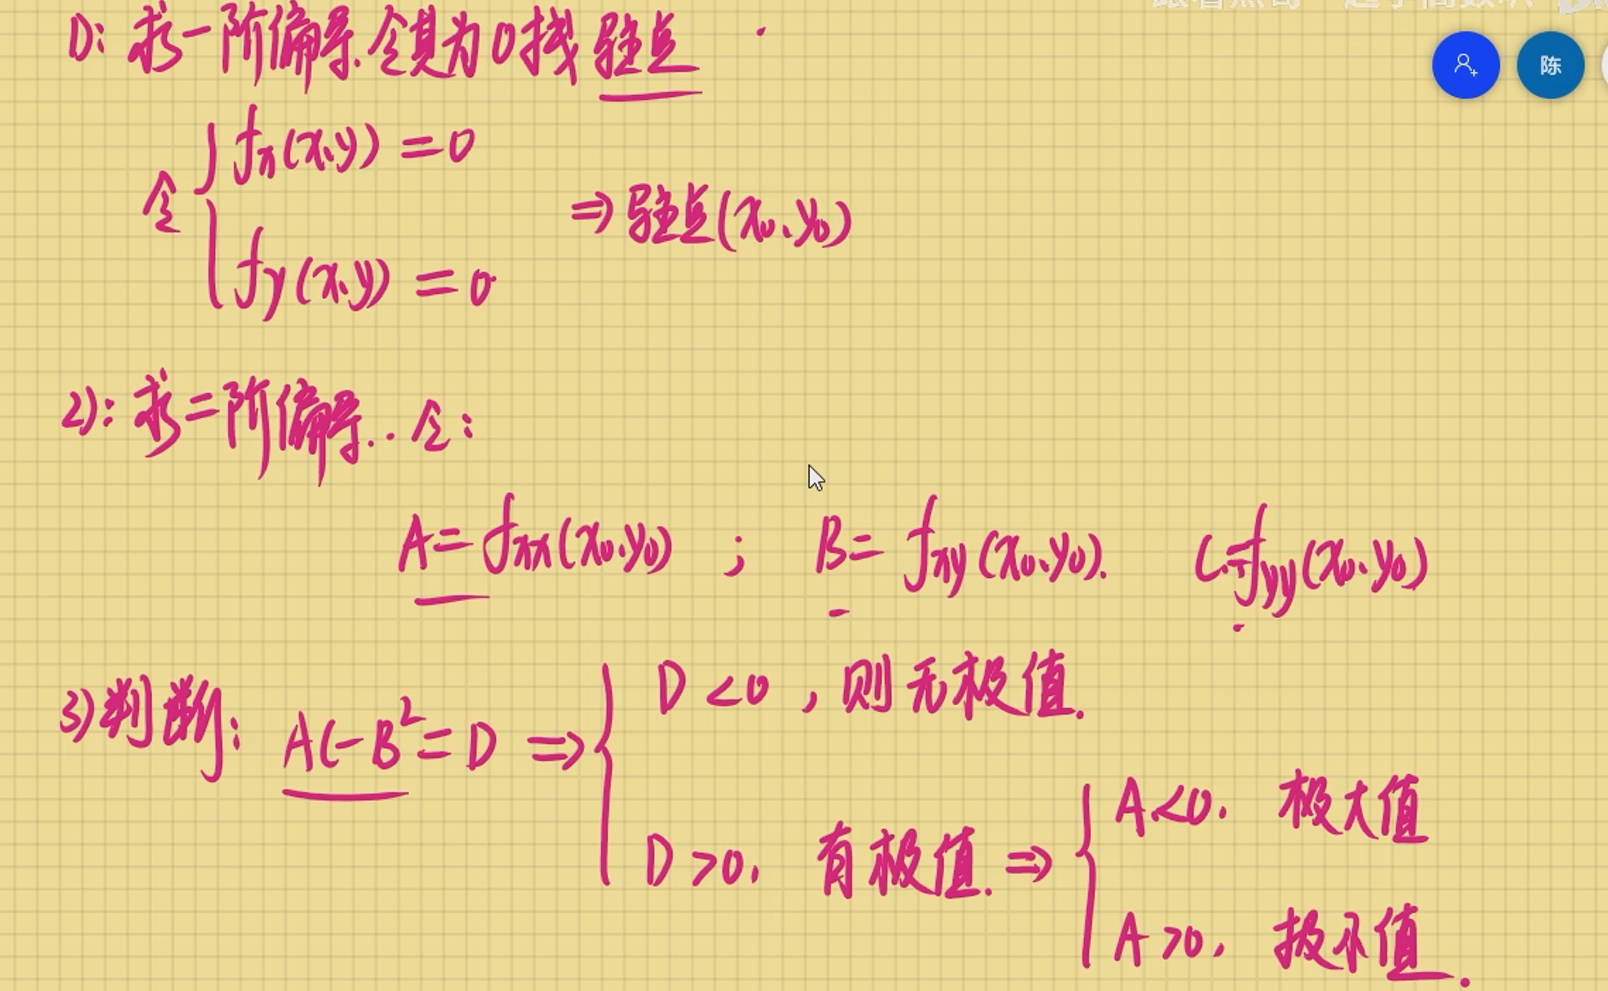 陈
1): 求一阶偏导.令其为0找驻点
令 { fx(x.y) = 0
fy(x.y) = 0
⇒驻点(x₀.y₀)
2): 求二阶偏导..令:
A = fxx(x₀.y₀) ; B = fxy(x₀.y₀). C = fyy(x₀.y₀)
3)判断: AC-B²=D ⇒ { D<0, 则无极值.
D>0. 有极值. ⇒ { A<0. 极大值
A>0. 极小值.